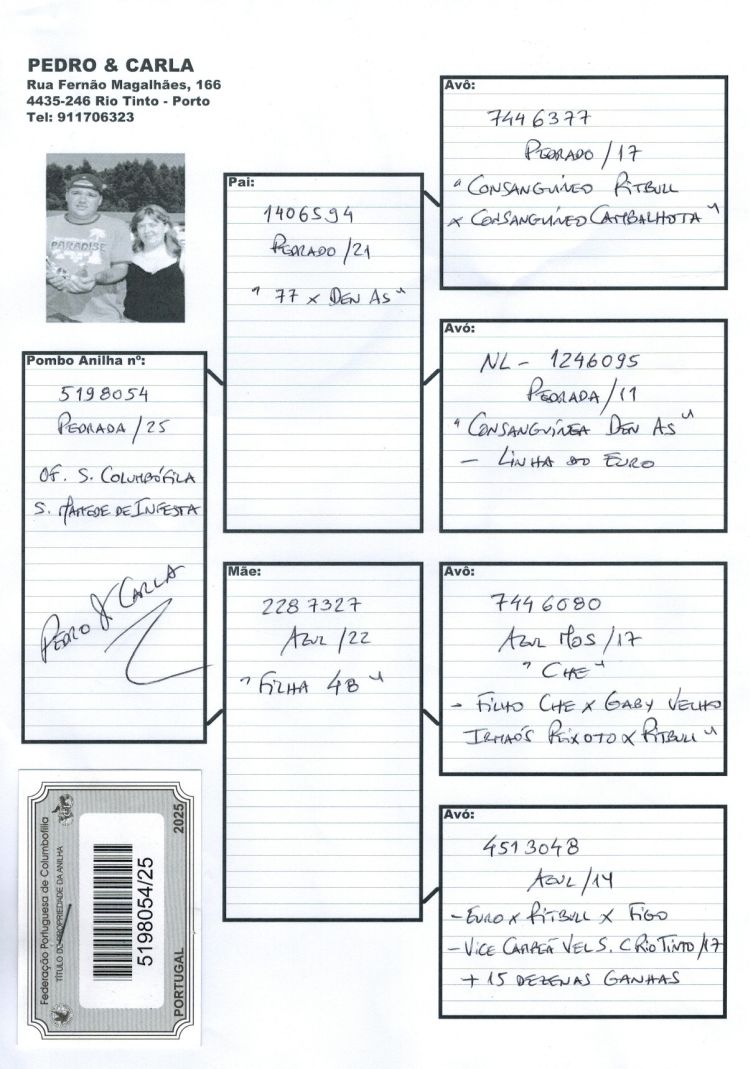 PEDRO & CARLA
Rua Fernão Magalhães, 166
4435-246 Rio Tinto - Porto
Tel: 911706323
PARADISE
Pombo Anilha nº:
5198054
PEDRADA /25
OF. S. COLUMBÓFILA
S. MAMEDE DE INFESTA
PEDRO & CARLA
Pai:
1406594
PEDRADO /21
" 77 x DEN AS "
Mãe:
2287327
AZUL /22
" FILHA 48 "
Avô:
7446377
PEDRADO /17
" CONSANGUÍNEO PITBULL
x CONSANGUÍNEO CAMBALHOTA "
Avó:
NL - 1246095
PEDRADA /11
" CONSANGUÍNEA DEN AS "
- LINHA DO EURO
Avô:
7446080
AZUL MOS /17
" CHE "
- FILHO CHE x GABY VELHO
IRMAÓS PEIXOTO x PITBULL "
Avó:
4513048
AZUL /14
- EURO x PITBULL x FIGO
- VICE CAMPEÃ VEL S. C RIO TINTO /17
+ 15 DEZENAS GANHAS
Federação Portuguesa de Columbofilia
TÍTULO DE PROPRIEDADE DA ANILHA
5198054/25
PORTUGAL 2025